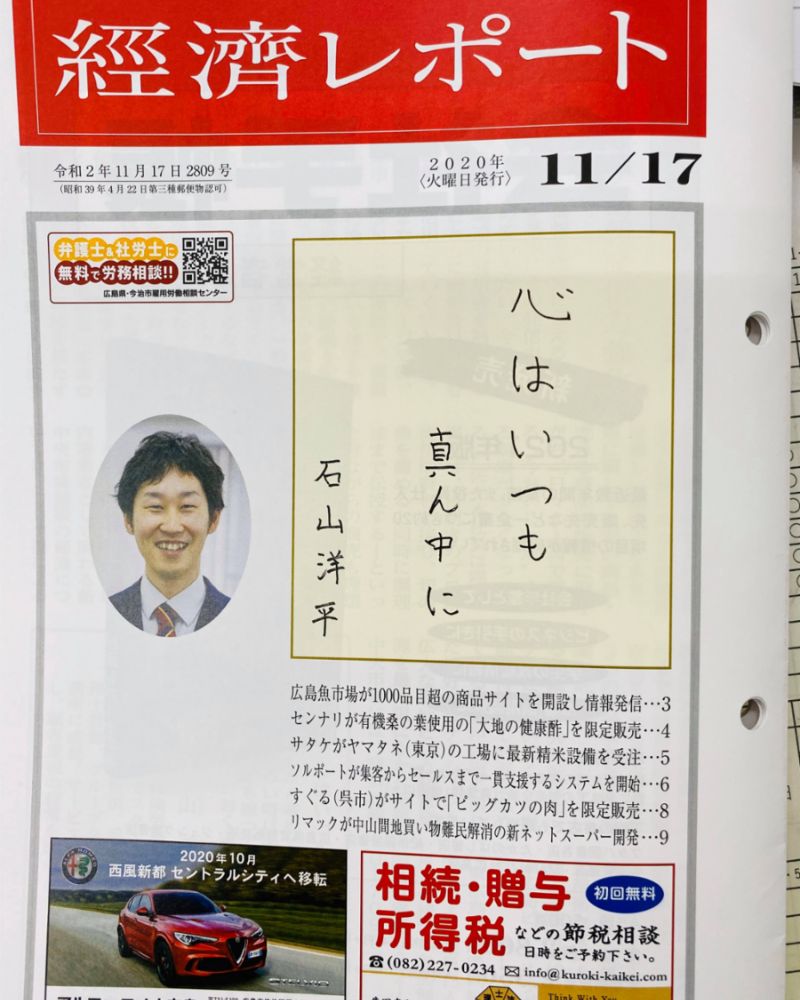 經濟レポート
令和2年11月17日2809号
（昭和39年4月22日第三種郵便物認可）
2020年
〈火曜日発行〉
11/17
弁護士&社労士に
無料で労務相談!!
広島県・今治市雇用労働相談センター
心はいつも
真ん中に
石山洋平
広島魚市場が1000品目超の商品サイトを開設し情報発信…3
センナリが有機桑の葉使用の「大地の健康酢」を限定販売…4
サタケがヤマタネ（東京）の工場に最新精米設備を受注…5
ソルボートが集客からセールスまで一貫支援するシステムを開始…6
すぐる（呉市）がサイトで「ビッグカツの肉」を限定販売…8
リマックが中山間地買い物難民解消の新ネットスーパー開発…9
2020年10月
西風新都 セントラルシティへ移転
STELVIO
相続・贈与
初回無料
所得税
などの節税相談
日時をご予約下さい。
☎(082)227-0234 ✉info@kuroki-kaikei.com
Think With You